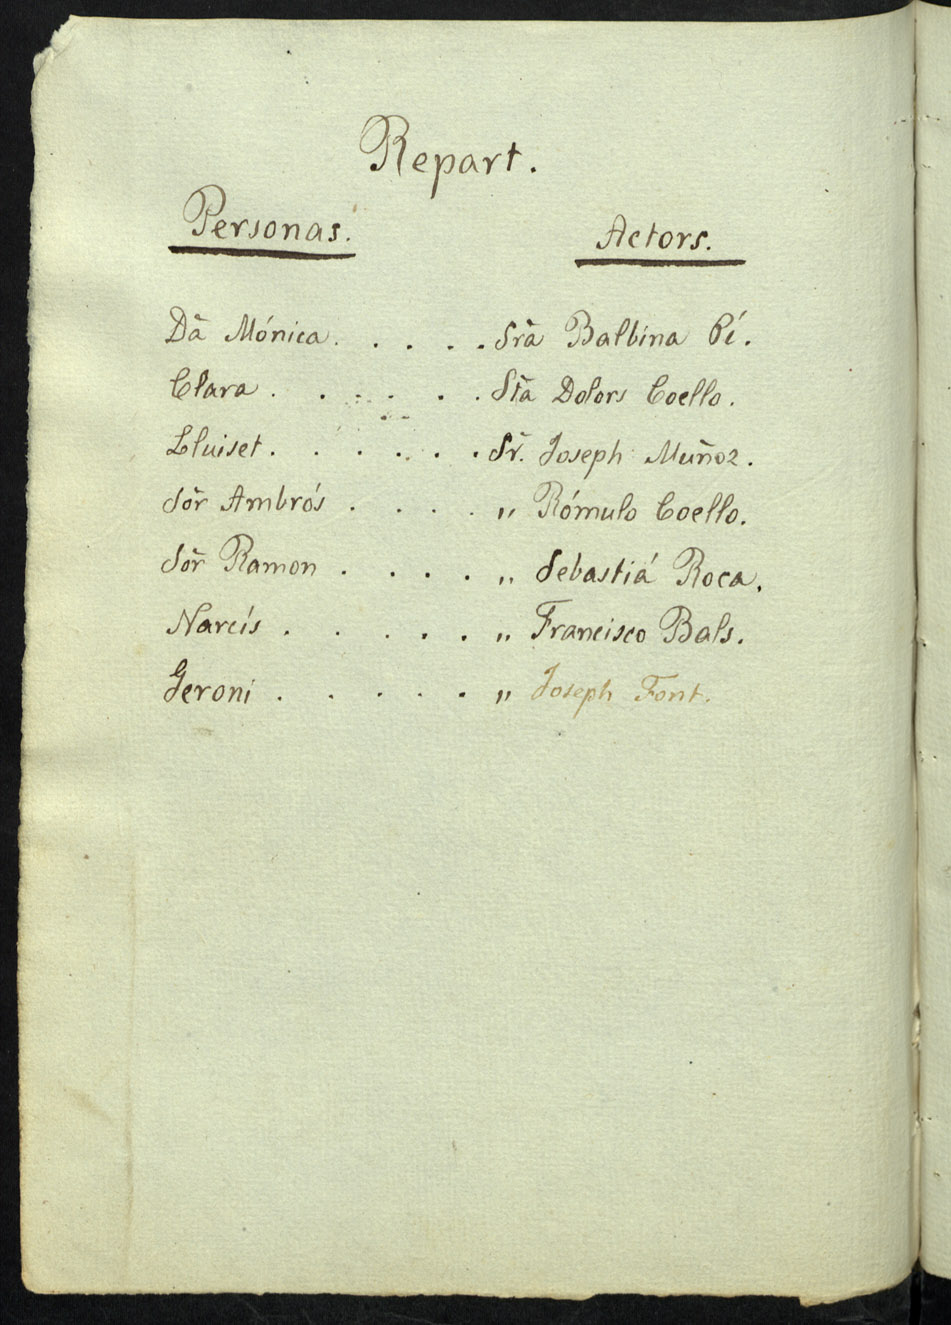 Repart.
Personas. Actors.
Dª Mónica. . . . . Srª Balbina Pí.
Clara . . . . . . Stª Dolors Coello.
Lluiset. . . . . . Sr. Joseph Muñoz.
Sor Ambrós . . . . „ Rómulo Coello.
Sor Ramon . . . . „ Sebastiá Roca.
Narcís . . . . . „ Francisco Bals.
Geroni . . . . . „ Joseph Font.